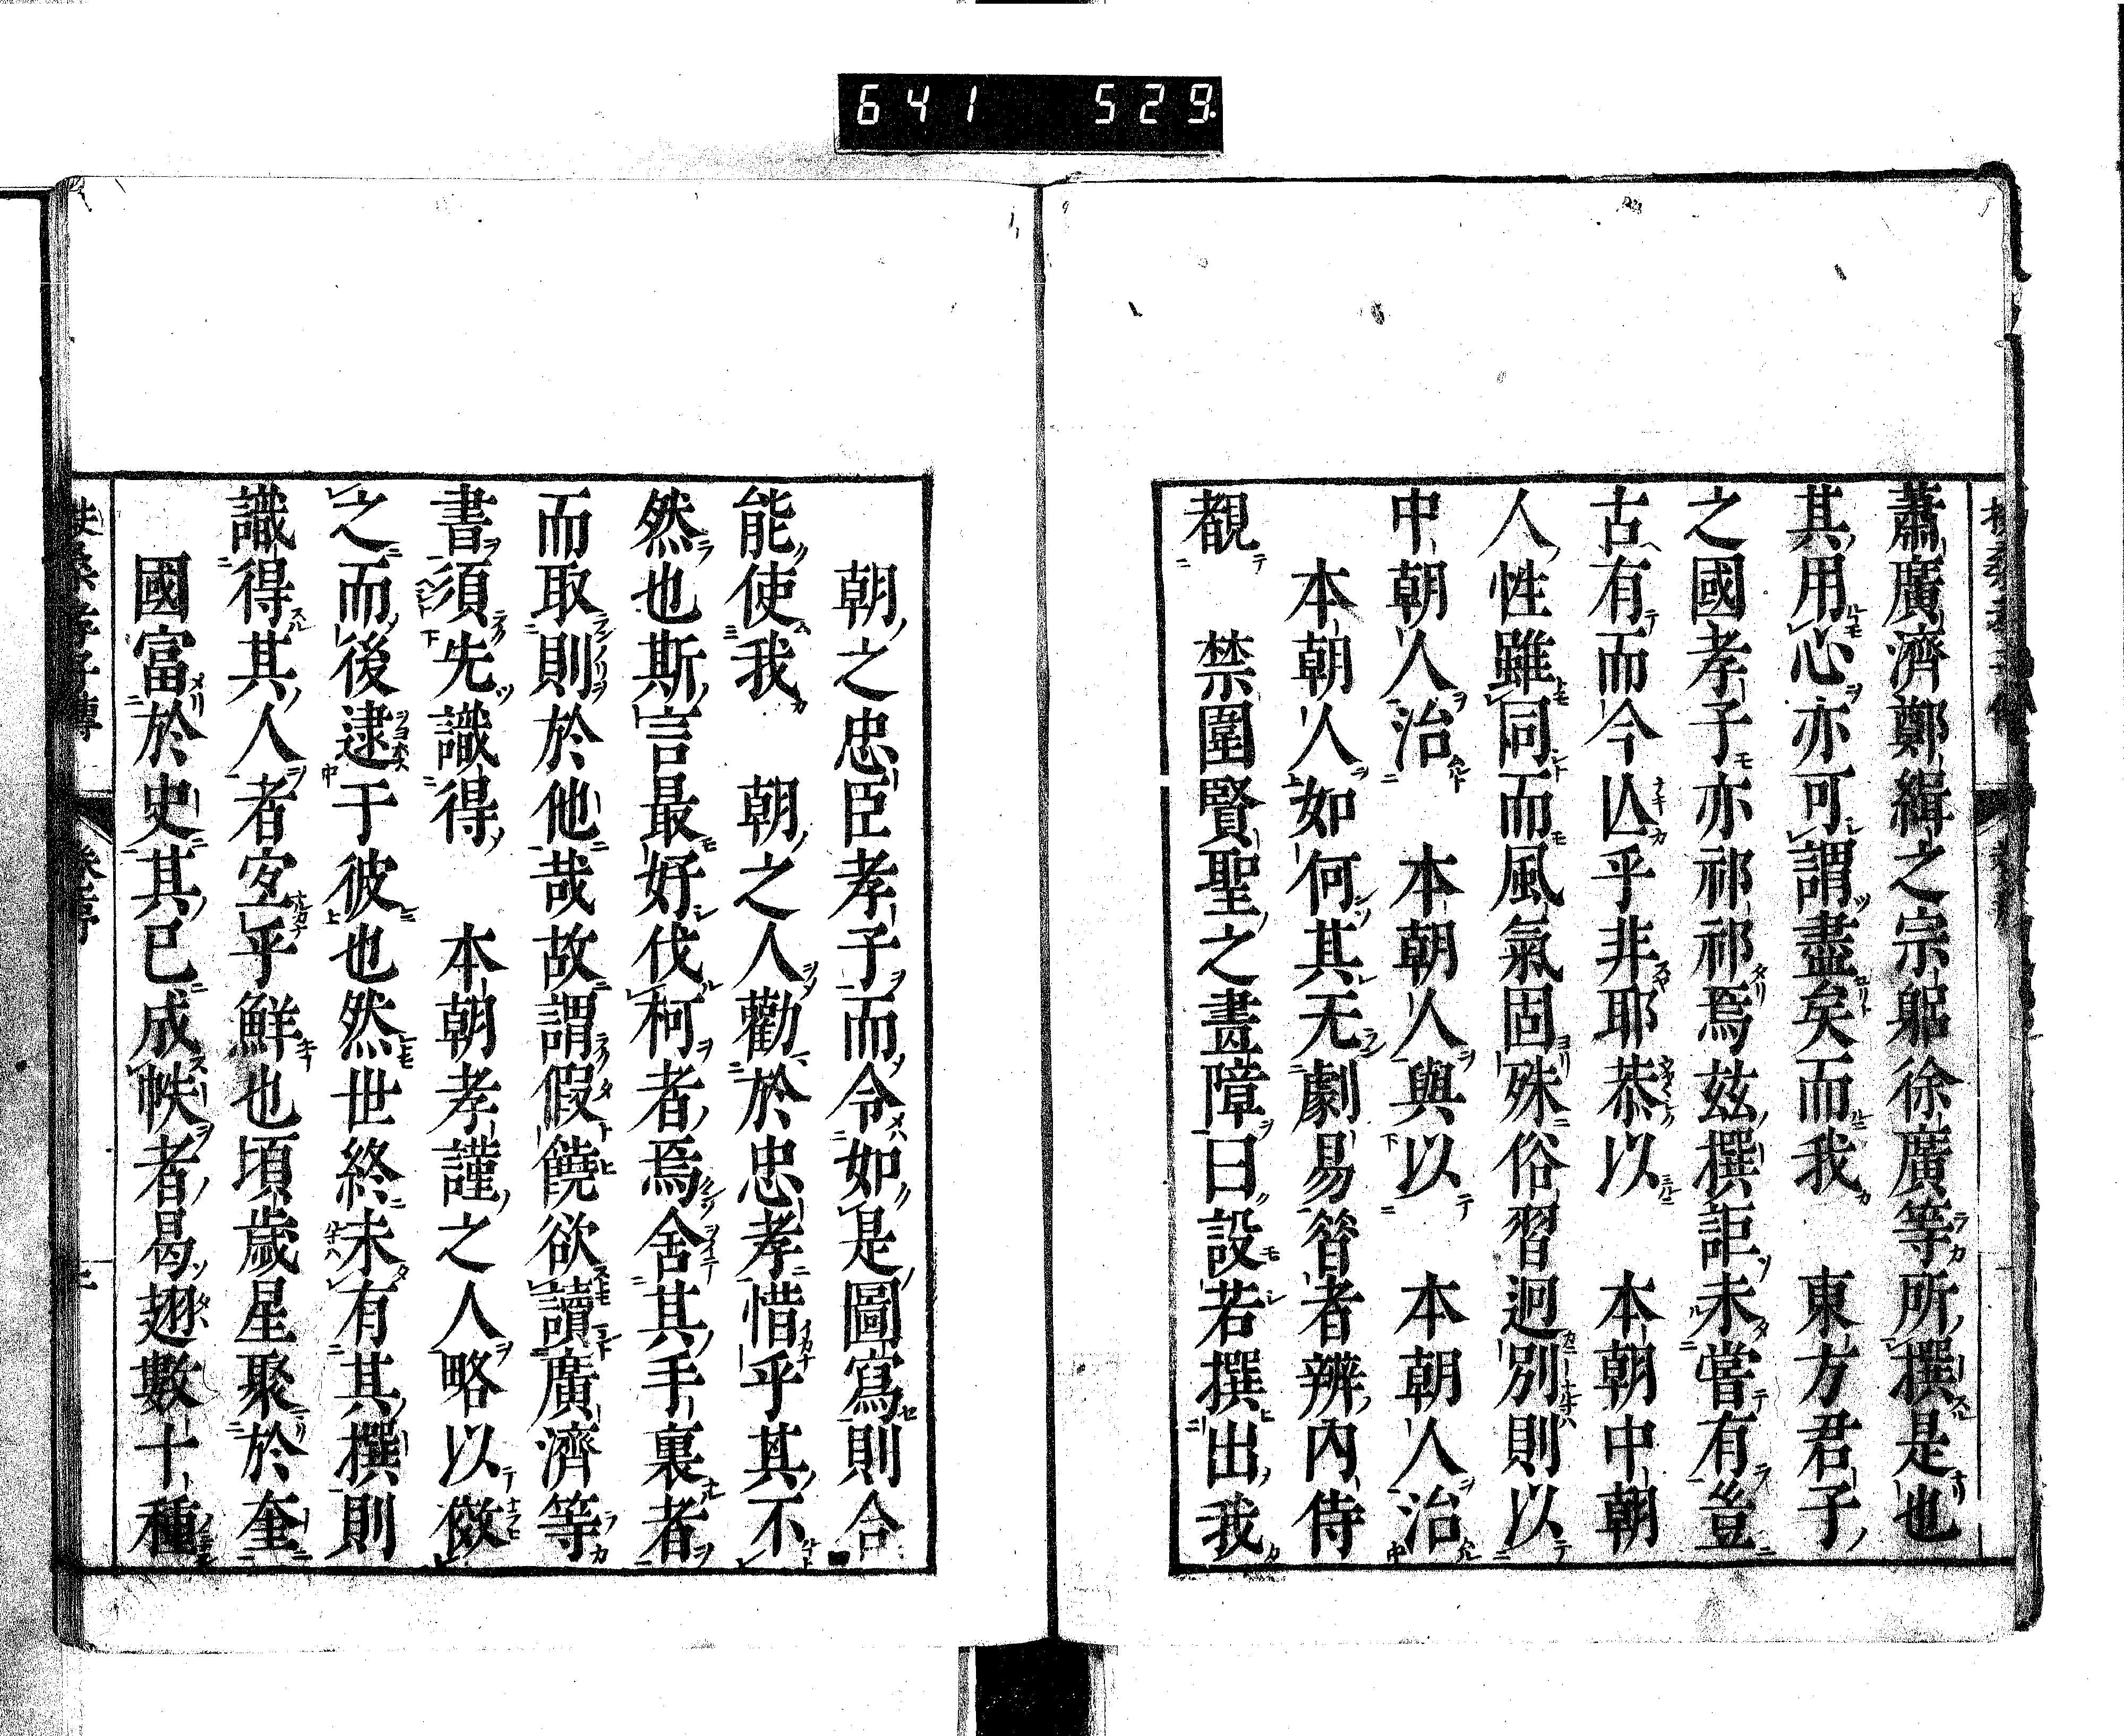 641 529
蕭廣濟鄭緝之宗躬徐廣等所撰是也
其用心亦可謂盡矣而我　東方君子
之國孝子亦祁祁焉茲撰詎未嘗有豈
古有而今亾乎非耶恭以　本朝中朝
人性雖同而風氣固殊俗習迥別則以
中朝人治　本朝人與以　本朝人治
本朝人如何其无劇易㫺者辨內侍
覩　禁圍賢聖之畫障曰設若撰出我
朝之忠臣孝子而令如是圖寫則合
能使我　朝之人勸於忠孝惜乎其不
然也斯言最好伐柯者焉舍其手裏者
而取則於他哉故謂假饒欲讀廣濟等
書須先識得　本朝孝謹之人略以傚
之而後逮于彼也然世終未有其撰則
識得其人者寔乎鮮也頃歲星聚於奎
國富於史其已成帙者曷翅數十種
孝子傳